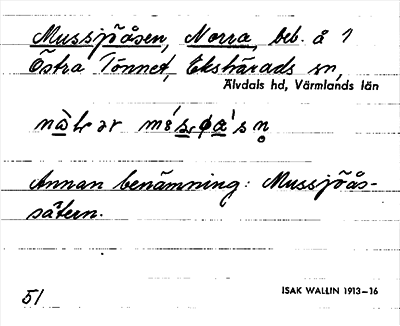 Mussjöåsen, Norra, beb. å 1
Östra Tönnet, Ekshärads sn,
Älvdals hd, Värmlands län
Annan benämning: Mussjöås-
sätern.
51 ISAK WALLIN 1913–16